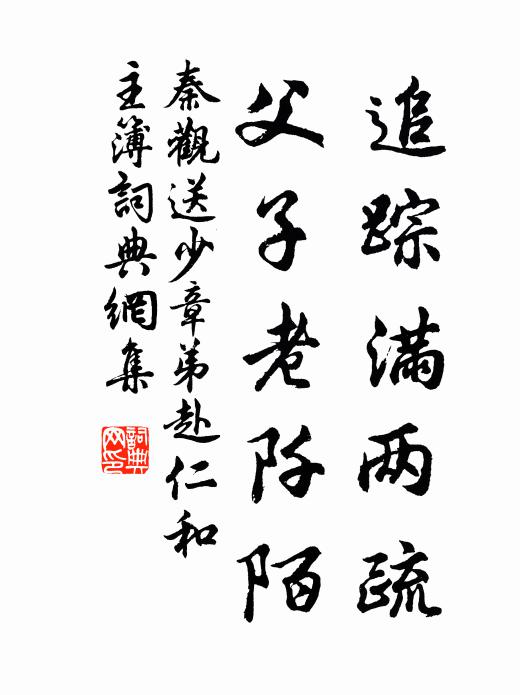 追踪满两疏
父子老阡陌
秦觀送少章弟赴仁和
主簿詞典網集
詞典
网印